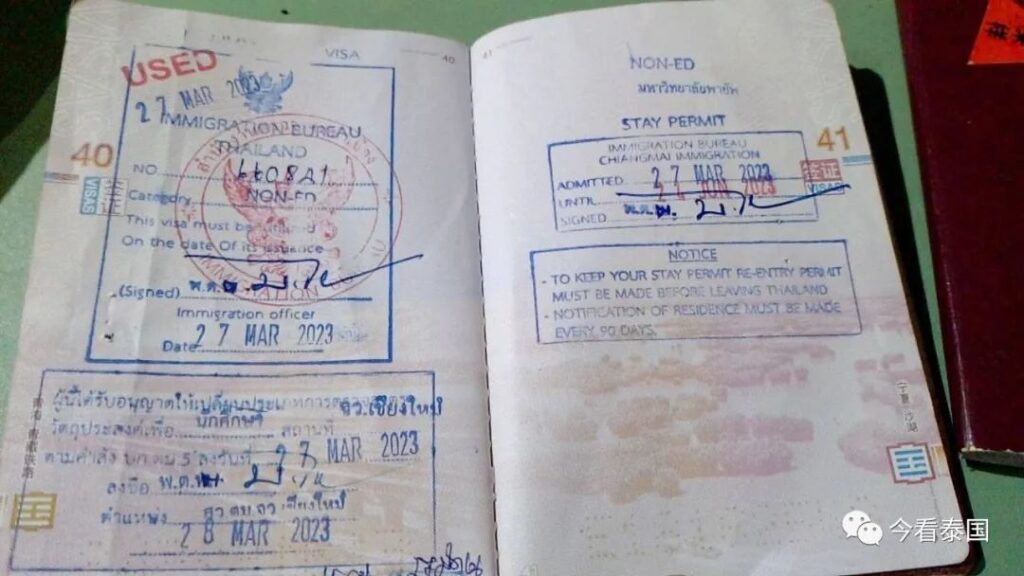 VISA
40
USED
27 MAR 2023
IMMIGRATION BUREAU
THAILAND
NO.
Category NON-ED
This visa must be
On the date Of its
(Signed)
IMMIGRATION
Immigration officer
Date 27 MAR 2023
40
VISAS
ผู้นี้ได้รับอนุญาตให้เปลี่ยนประเภทการ
จว.เชียงใหม่
วัตถุประสงค์เพื่อ นักศึกษา สถานที่
27 MAR 2023
ลงชื่อ พ.ต.
ตำแหน่ง
28 MAR 2023
41
NON-ED
มหาวิทยาลัยพายัพ
STAY PERMIT
IMMIGRATION BUREAU
CHIANGMAI IMMIGRATION
ADMITTED 27 MAR 2023
UNTIL 2023
SIGNED
41
签证
VISAS
NOTICE
- TO KEEP YOUR STAY PERMIT RE-ENTRY PERMIT
MUST BE MADE BEFORE LEAVING THAILAND
- NOTIFICATION OF RESIDENCE MUST BE MADE
EVERY 90 DAYS.
宁夏·沙湖
今看泰国